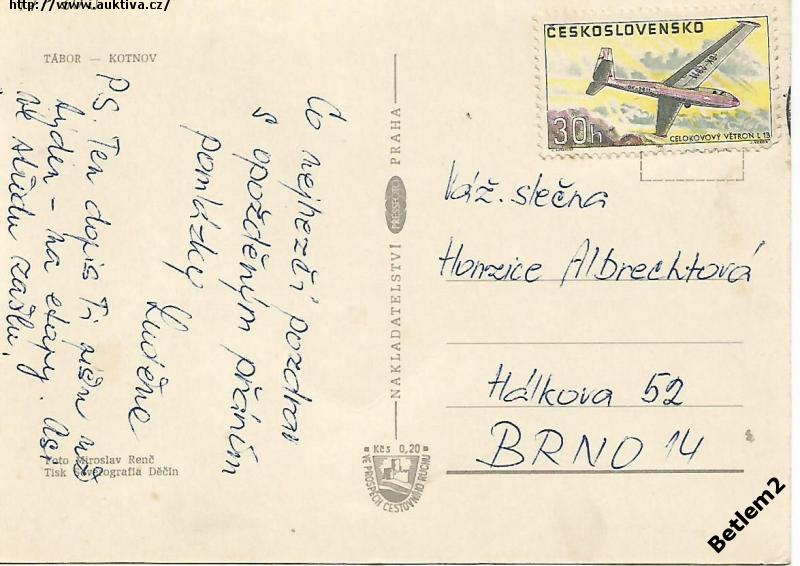 http://www.auktiva.cz/
TÁBOR — KOTNOV
Co nejhezčí pozdrav
s opožděným přáním
pomlázky
Luděne
PS. Ten dopis Ti píšu už
týden - na etapy. Asi
ve středu
NAKLADATELSTVÍ PRESSFOTO PRAHA
ČESKOSLOVENSKO
30h
CELOKOVOVÝ VĚTROŇ L 13
Váž. slečna
Honzice Albrechtová
Hálkova 52
BRNO 14
Kčs 0,20
VE PROSPĚCH CESTOVNÍHO RUCHU
Foto Miroslav Renč
Tisk Severografia Děčín
Betlem2